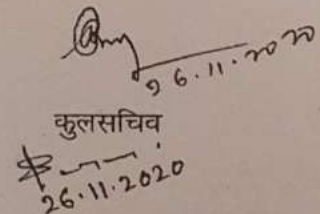 26.11.2020
कुलसचिव
26.11.2020